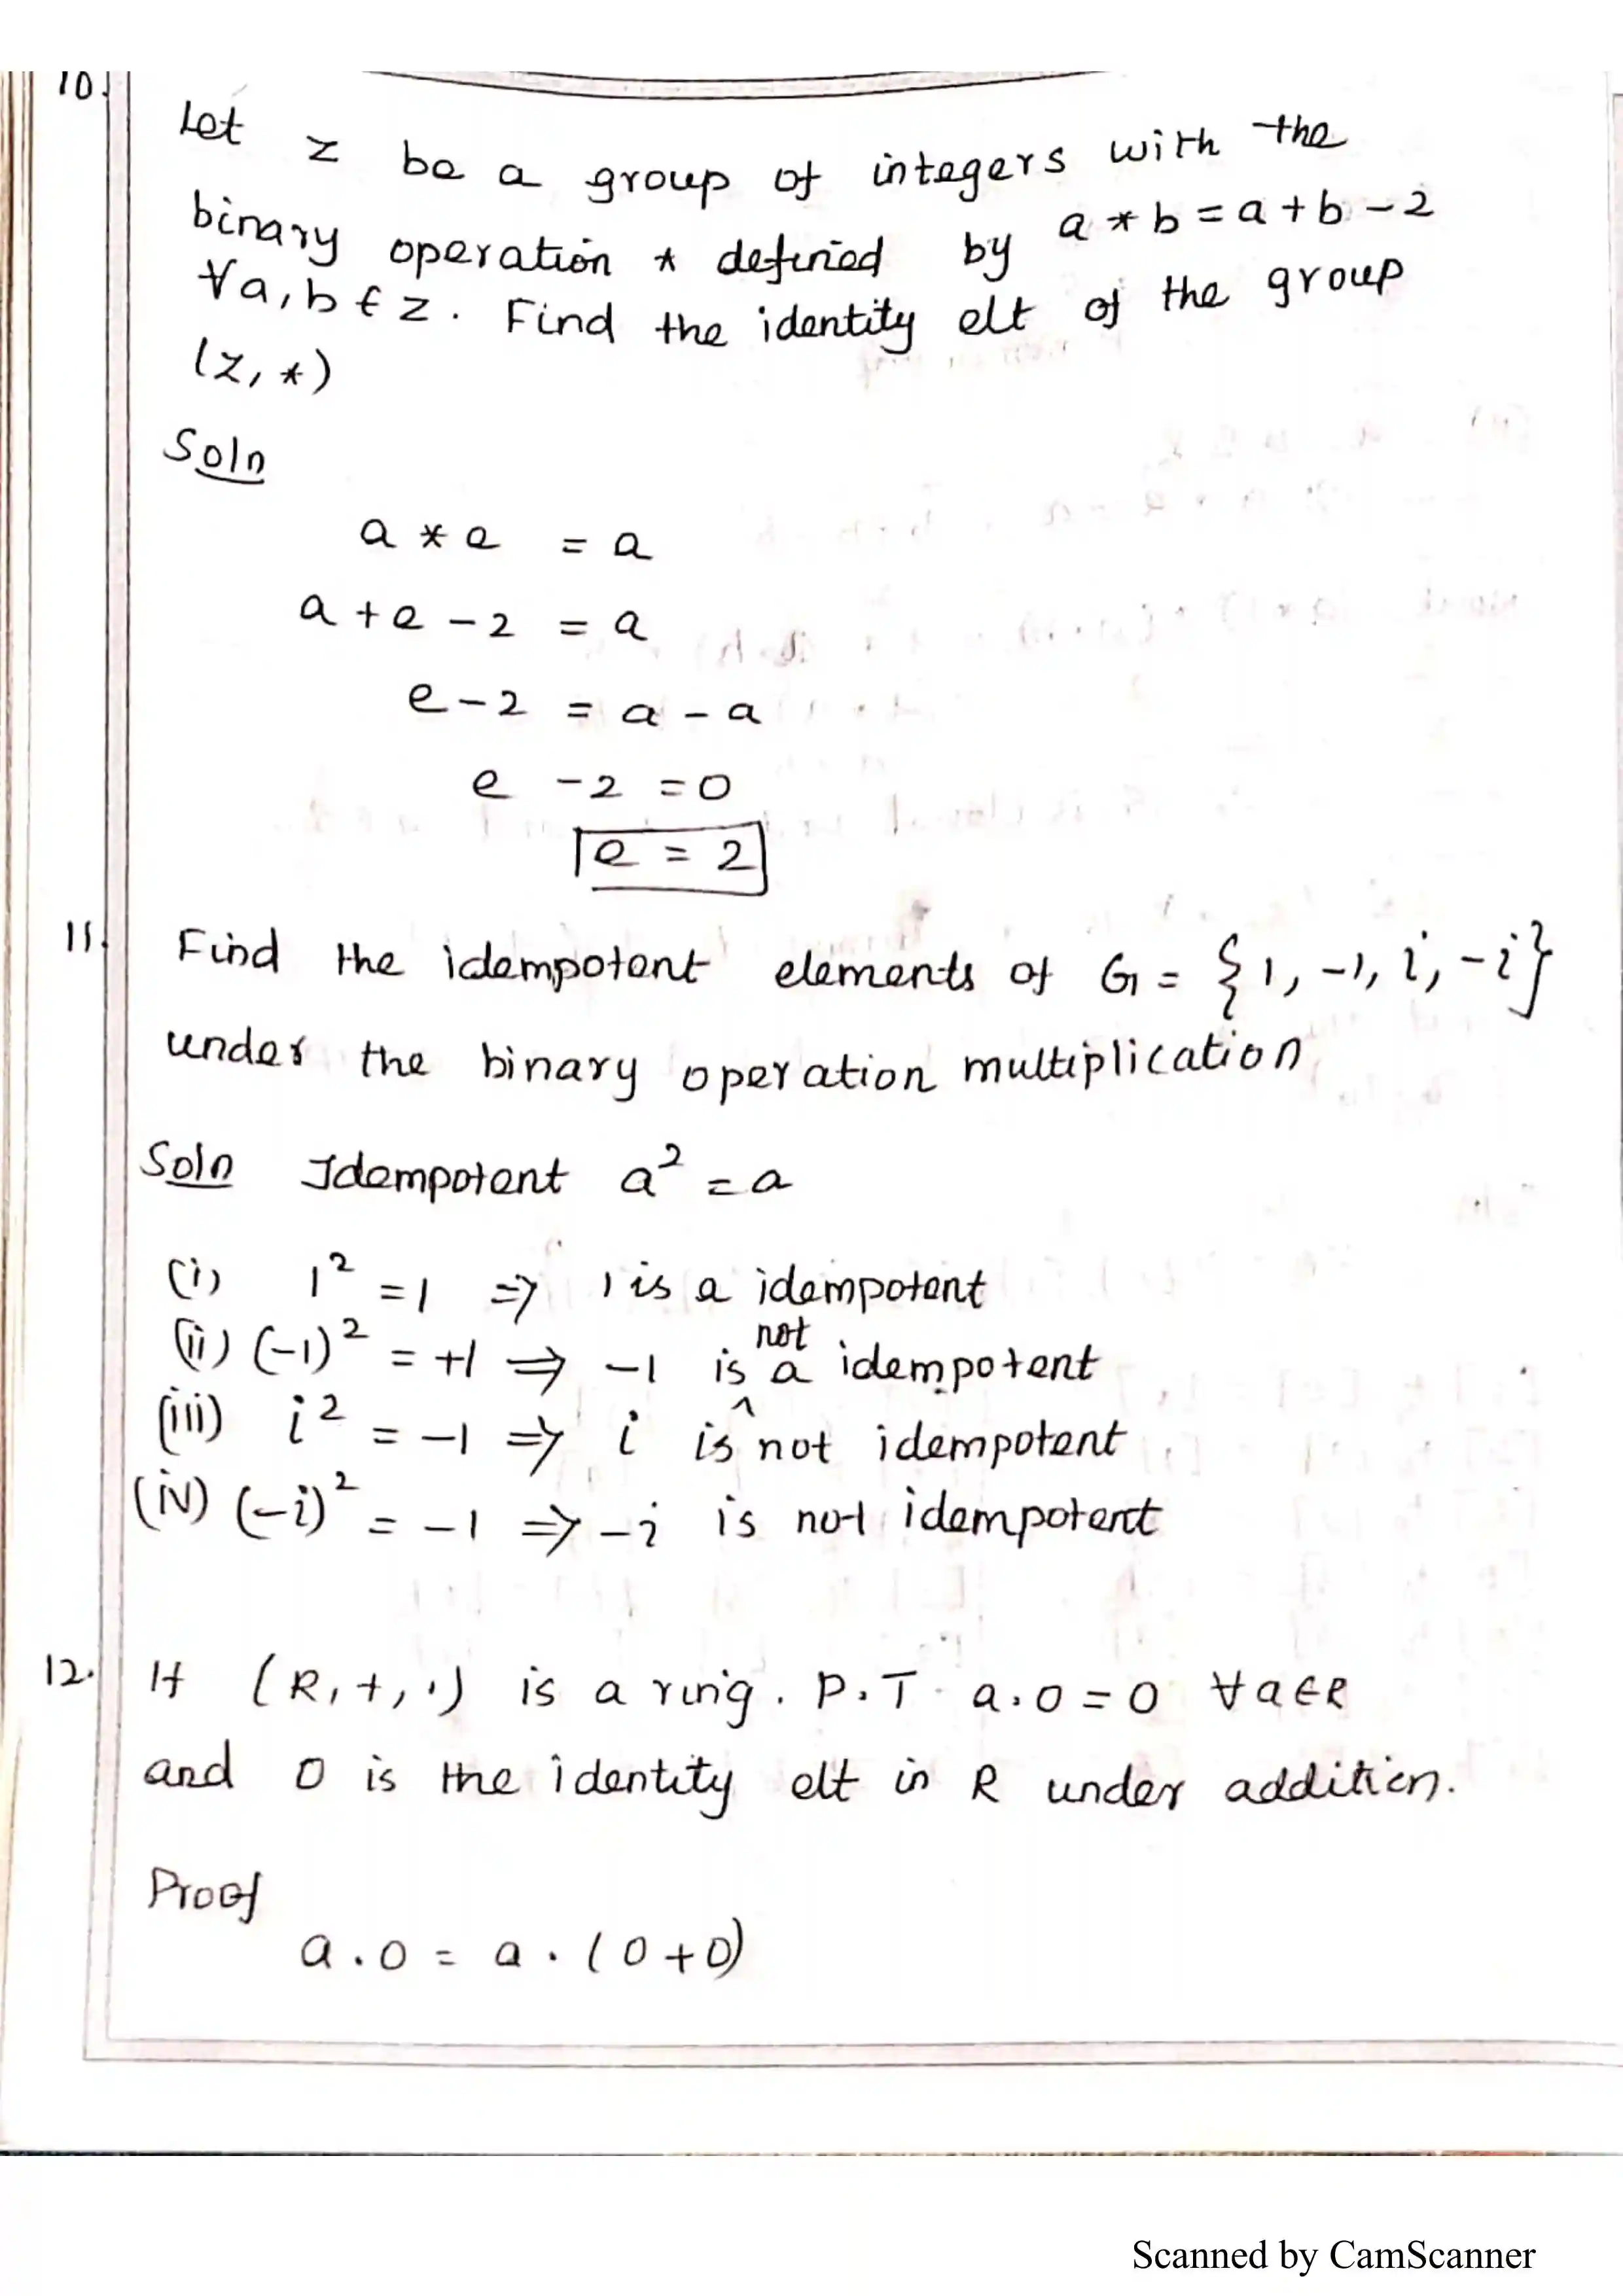 10.
Let z be a group of integers with the
binary operation * defined by a * b = a + b - 2
∀ a, b ∈ z. Find the identity elt of the group
(z, *)
Soln
a * e = a
a + e - 2 = a
e - 2 = a - a
e - 2 = 0
e = 2
11. Find the idempotent elements of G = {1, -1, i, -i}
under the binary operation multiplication
Soln Idempotent a² = a
(i) 1² = 1 => 1 is a idempotent
(ii) (-1)² = +1 => -1 is not a idempotent
(iii) i² = -1 => i is not idempotent
(iv) (-i)² = -1 => -i is not idempotent
12. If (R, +, ·) is a ring. P.T a.0 = 0 ∀ a ∈ R
and 0 is the identity elt in R under addition.
Proof
a . 0 = a . (0 + 0)
Scanned by CamScanner